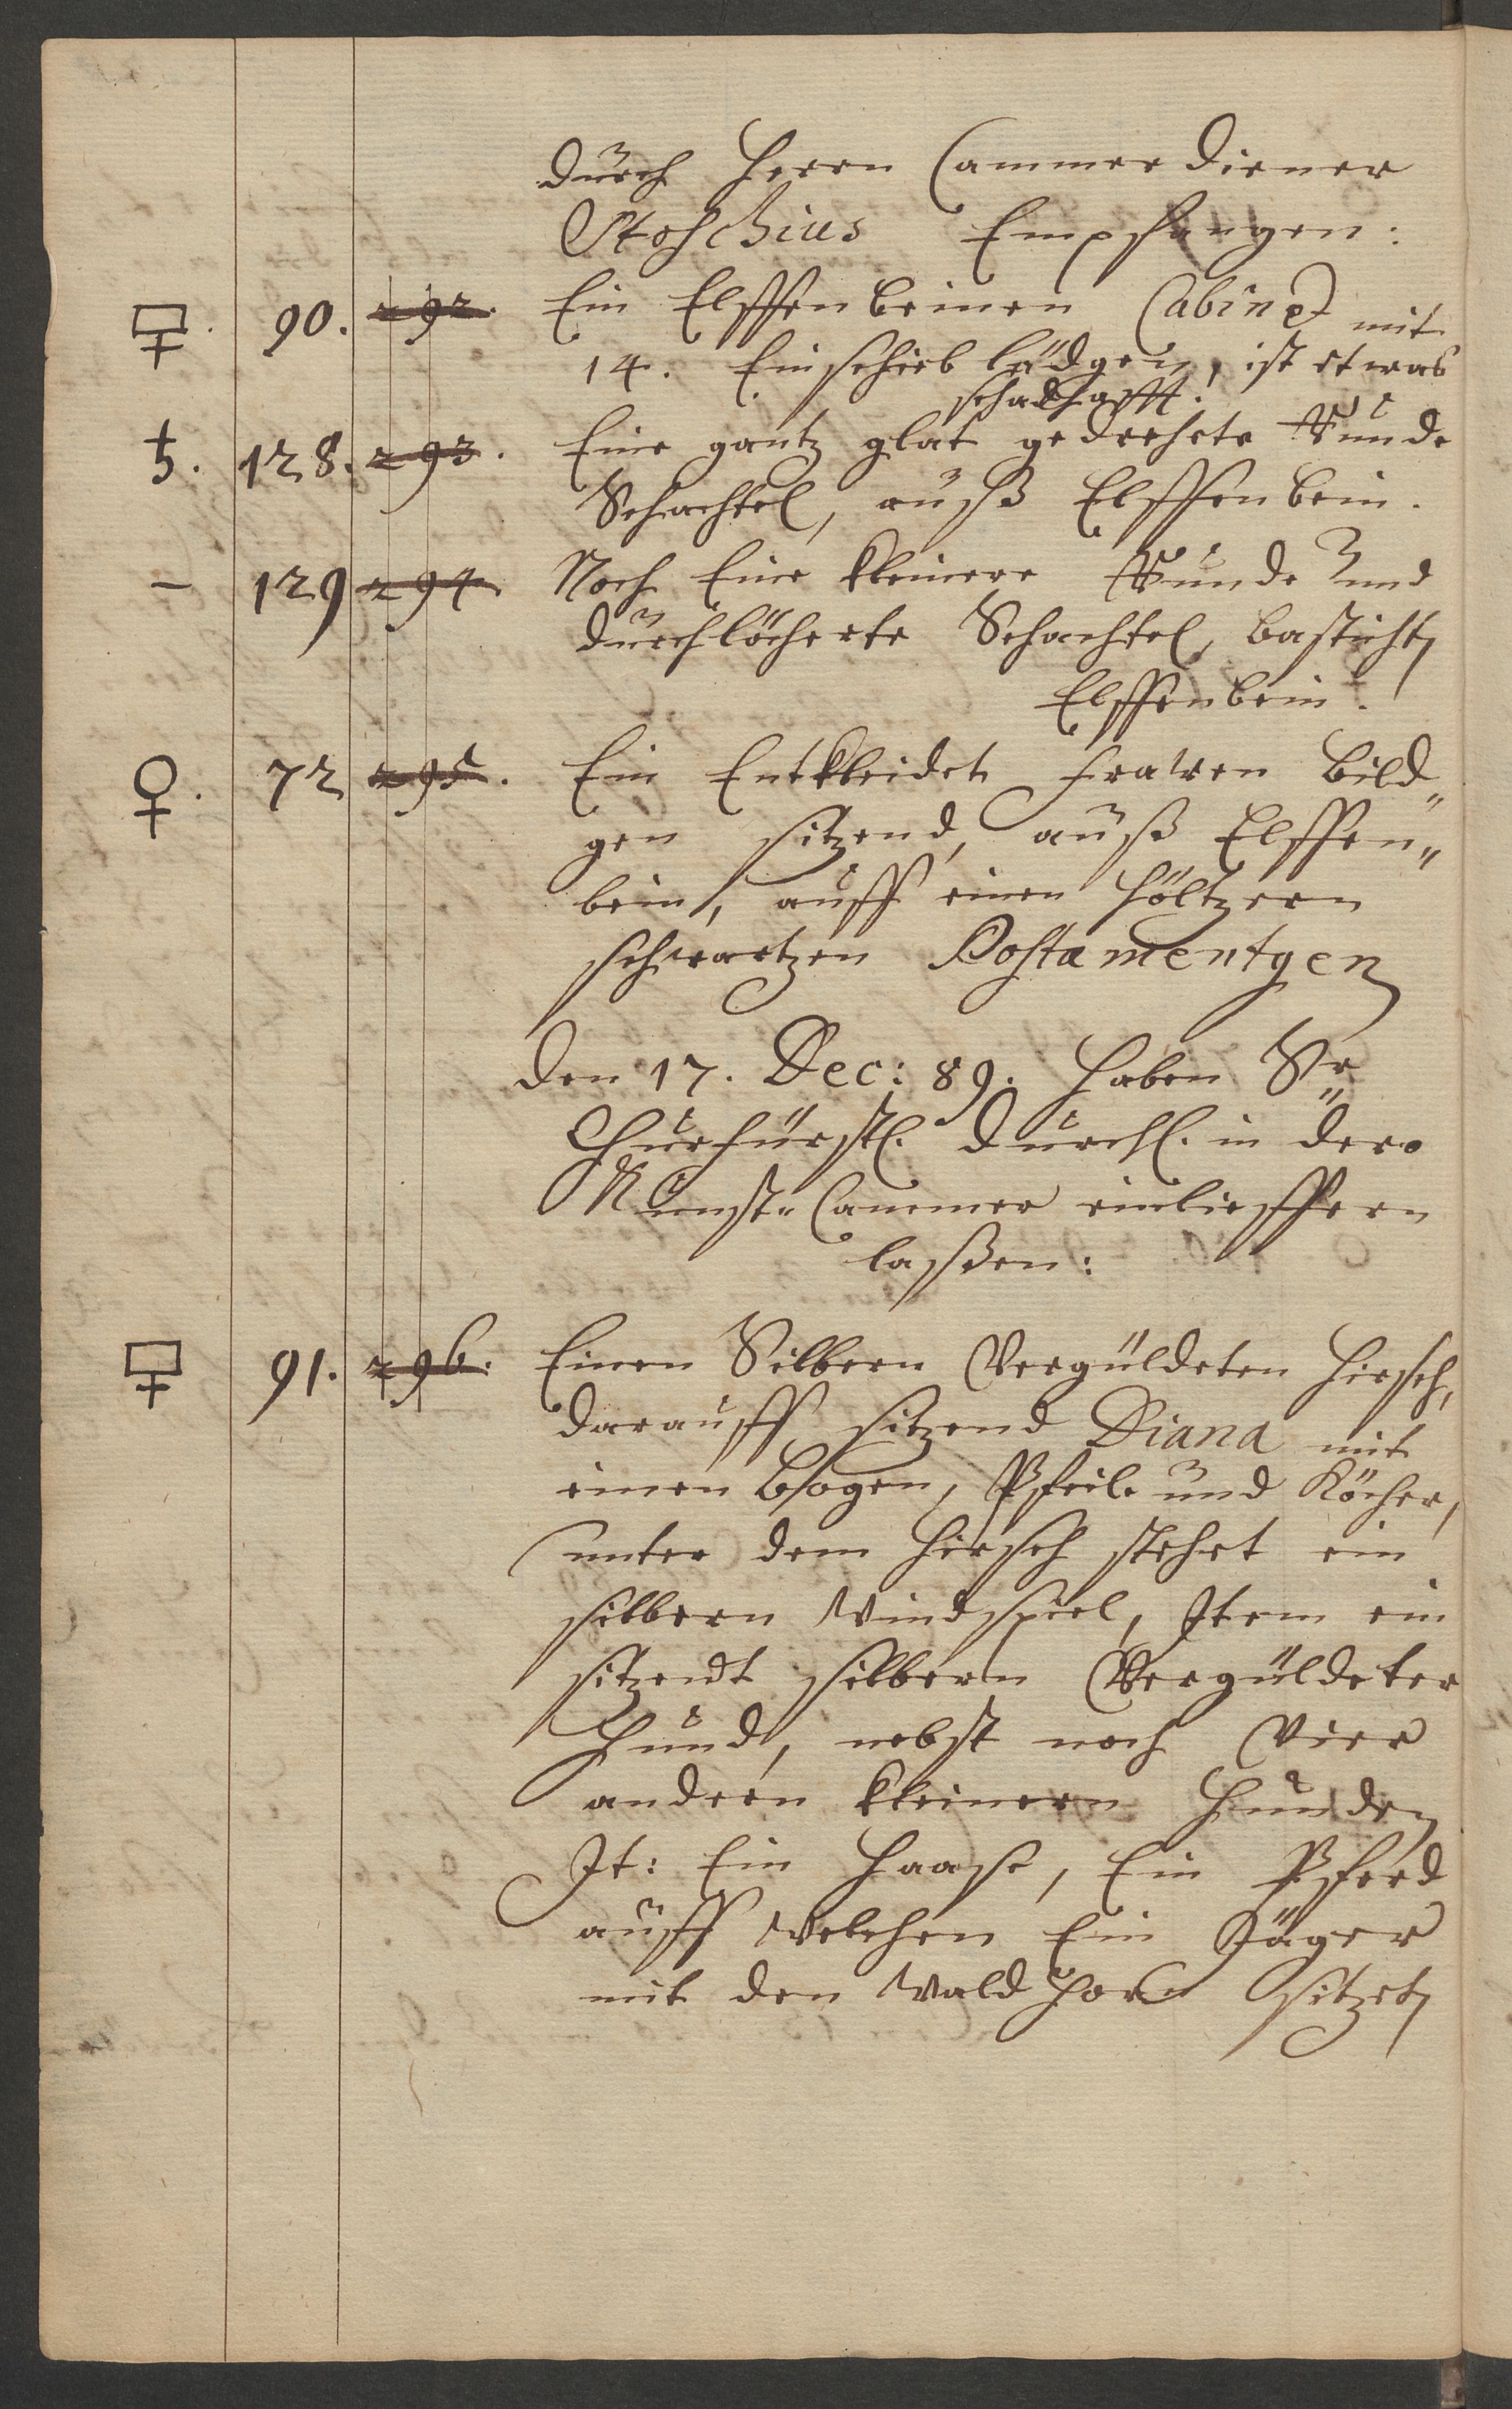 durch Herrn Cammerdiener
Stoschius Empfangen:
🜿. 90. 292. Ein Elffenbeinen Cabinet mit
14. Einschieb lädgen, ist etwas
schadhafft.
♄. 128. 293. Eine gantz glat gedrehete Runde
Schachtel, außß Elffenbein.
– 129 294. Noch Eine kleinere Runde und
durchlöcherte Schachtel,
Elffenbein.
♀. 72 295. Ein Entkleidet Frawen Bild„
gen sitzend, auß Elffen„
bein, auff einen höltzern
schwartzen Postamentgen
Den 17. Dec: 89. haben Sr
Churfürstl. Durchl. in dero
Kunst-Cammer einlieffern
laßen:
91. 296. Einen Silbern Vergüldeten Hirsch,
darauff sitzend Diana mit
einen Bogen, Pfeile und Köcher,
unter dem Hirsch stehet ein
silbern Windspiel, Item ein
sitzendt silbern Vergüldeter
Hund, nebst noch Vier
andern kleinern Hunden
It: Ein Haase, Ein Pferd
auff Welchen Ein Jäger
mit den Waldhorn sitzet